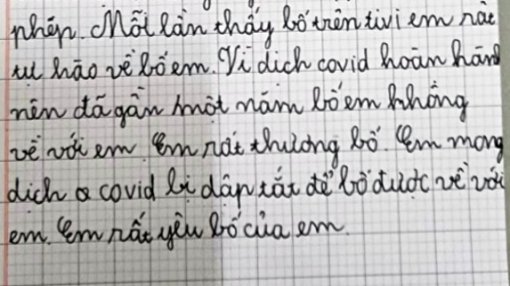 phép. Mỗi lần thấy bố trên tivi em rất
tự hào về bố em. Vì dịch covid hoàn hành
nên đã gần một năm bố em không
về với em. Em rất thương bố. Em mong
dịch covid bị dập tắt để bố được về với
em. Em rất yêu bố của em.